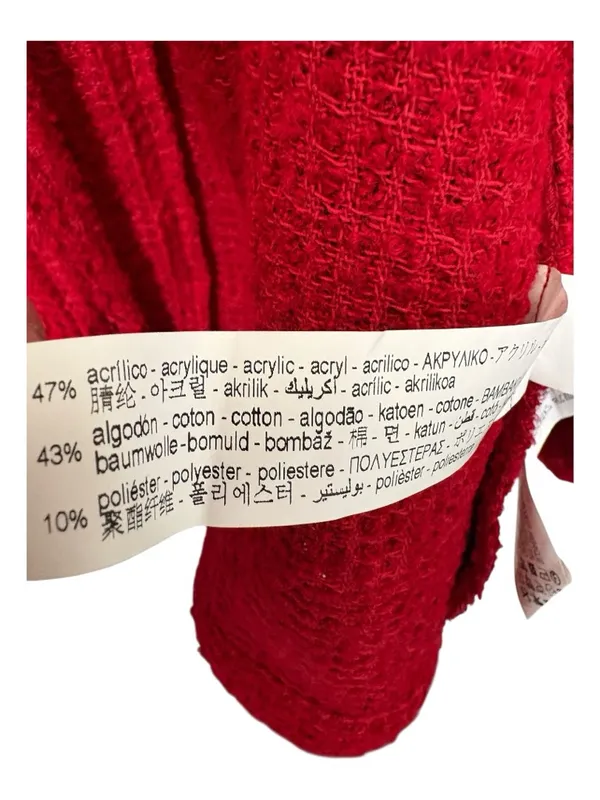 47% acrílico - acrylique - acrylic - acryl - acrilico - ΑΚΡΥΛΙΚΟ - アクリル -
腈纶 - 아크릴 - akrilik - أكريليك - acrílic - akrilikoa
43% algodón - coton - cotton - algodão - katoen - cotone -
baumwolle - bomuld - bombaž - 棉 - 면 - katun - قطن -
10% poliéster - polyester - poliestere - ΠΟΛΥΕΣΤΕΡΑΣ -
聚酯纤维 - 폴리에스터 - بوليستير - polièster -